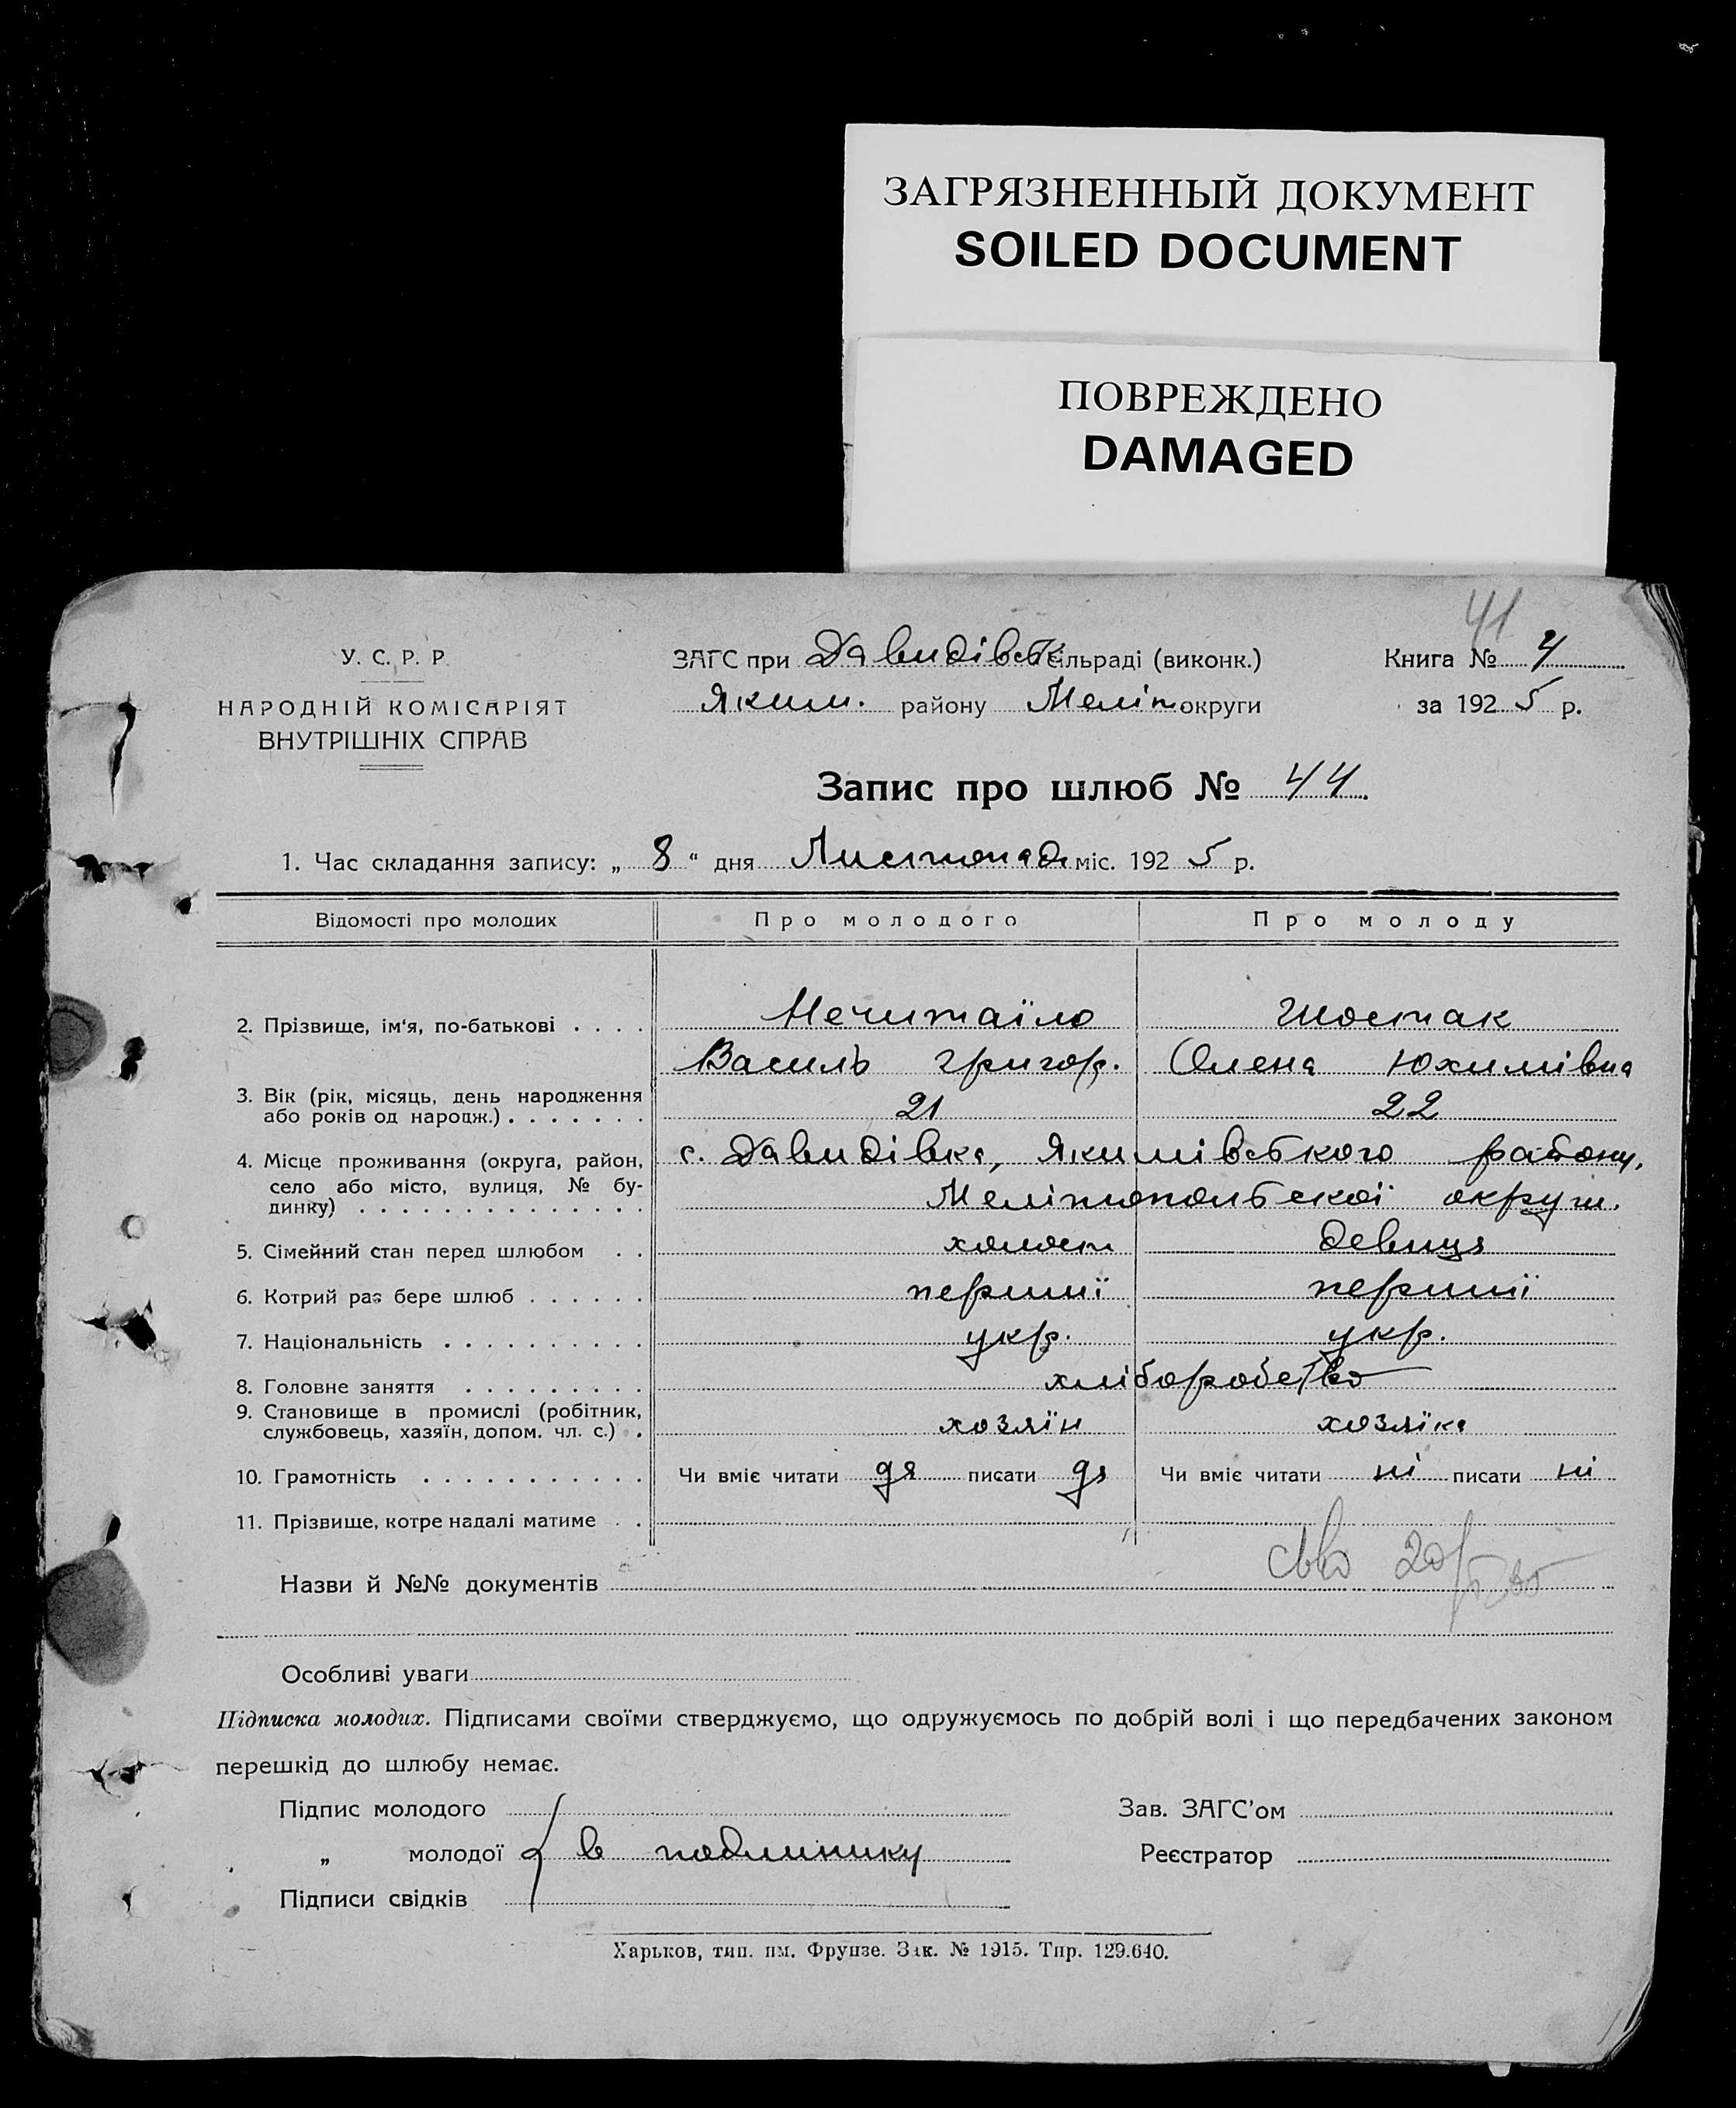 ЗАГРЯЗНЕННЫЙ ДОКУМЕНТ
SOILED DOCUMENT
ПОВРЕЖДЕНО
DAMAGED
41
У. С. Р. Р
НАРОДНІЙ КОМІСАРІЯТ
ВНУТРІШНІХ СПРАВ
ЗАГС при Давидівськ сільраді (виконк.)
Яким. району Меліт округи
Книга № 4
за 1925 р.
Запис про шлюб № 44.
1. Час складання запису: „ 8 “ дня Листопада міс. 1925 р.
Відомості про молодих Про молодого Про молоду
2. Прізвище, ім'я, по-батькові . . . . Нечитаїло Шостак
Василь Григор. Олена Юхимівна
3. Вік (рік, місяць, день народження
або років од народж.) . . . . . . . 21 22
4. Місце проживання (округа, район, с. Давидівка, Якимівського району,
село або місто, вулиця, № бу-
динку) . . . . . . . . . . . . . . Мелітопольської округи.
5. Сімейний стан перед шлюбом . . холост девиця
6. Котрий раз бере шлюб . . . . . . перший перший
7. Національність . . . . . . . . . . укр. укр.
8. Головне заняття . . . . . . . . . хліборобство
9. Становище в промислі (робітник,
службовець, хазяїн, допом. чл. с.) . хозяїн хозяїка
10. Грамотність . . . . . . . . . . . Чи вміє читати да писати да Чи вміє читати ні писати ні
11. Прізвище, котре надалі матиме . .
Назви й №№ документів
Особливі уваги
Підписка молодих. Підписами своїми стверджуємо, що одружуємось по добрій волі і що передбачених законом
перешкід до шлюбу немає.
Підпис молодого
„ молодої в подлинику
Підписи свідків
Зав. ЗАГС'ом
Реєстратор
Харьков, тип. им. Фрунзе. Зак. № 1915. Тир. 129.640.